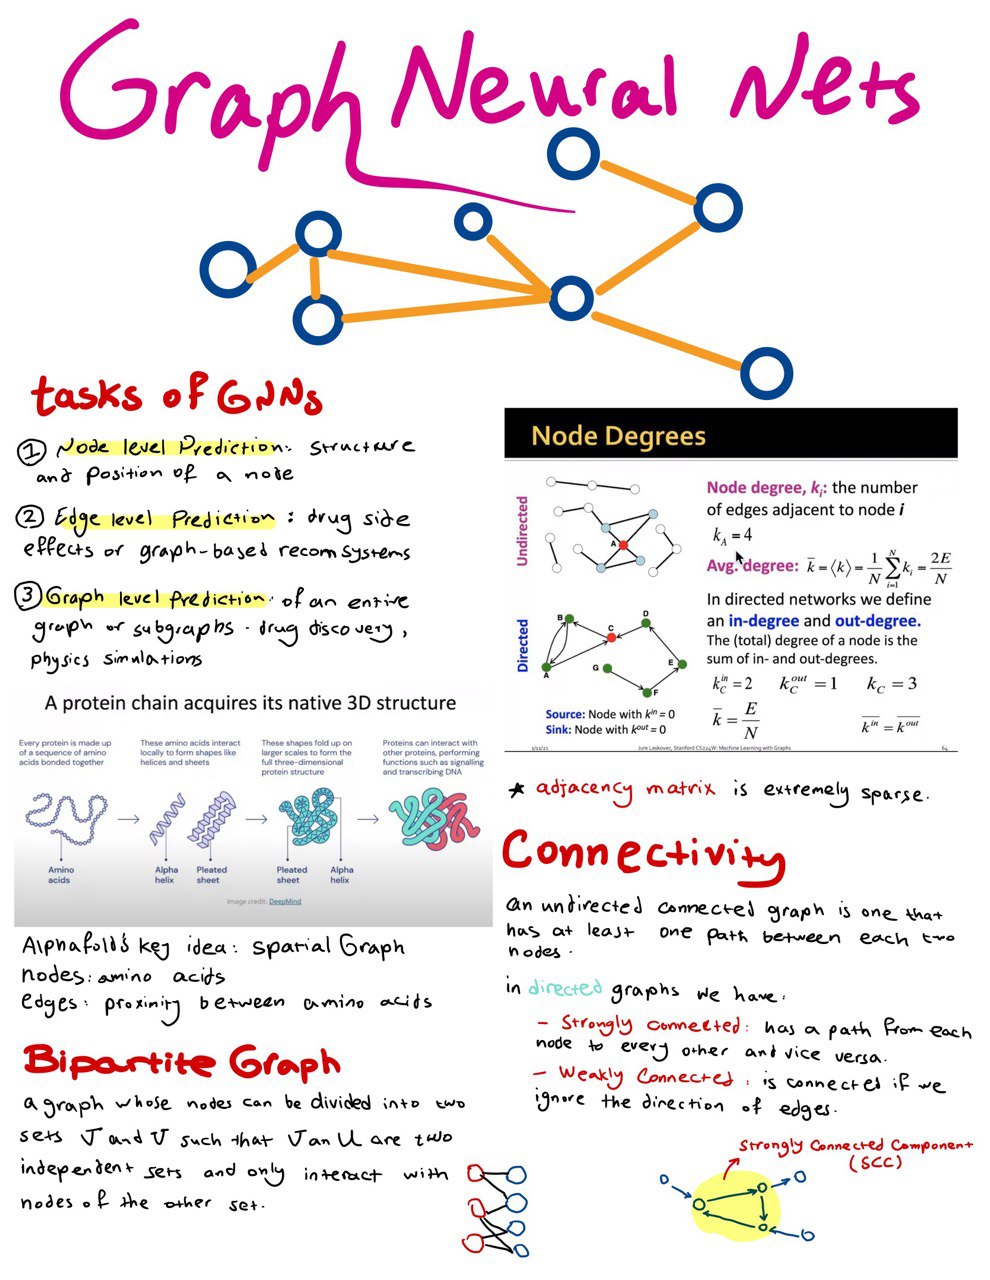 Graph Neural Nets
tasks of GNNs
① Node level Prediction: structure
and position of a node
② Edge level Prediction: drug side
effects or graph-based recom systems
③ Graph level prediction: of an entire
graph or subgraphs - drug discovery,
physics simulations
A protein chain acquires its native 3D structure
Every protein is made up
of a sequence of amino
acids bonded together
These amino acids interact
locally to form shapes like
helices and sheets
These shapes fold up on
larger scales to form the
full three-dimensional
protein structure
Proteins can interact with
other proteins, performing
functions such as signalling
and transcribing DNA
Amino
acids
Alpha
helix
Pleated
sheet
Pleated
sheet
Alpha
helix
Image credit: DeepMind
Alphafold's key idea: spatial Graph
nodes: amino acids
edges: proximity between amino acids
Bipartite Graph
a graph whose nodes can be divided into two
sets
and
such that
are two
independent sets and only interact with
nodes of the other set.
Node Degrees
Undirected
A
Node degree, kᵢ: the number
of edges adjacent to node i
k_A = 4
Avg. degree: k̄ = ⟨k⟩ = 1/N ∑_{i=1}^{N} kᵢ = 2E/N
Directed
B
D
C
G
E
A
F
Source: Node with kⁱⁿ = 0
Sink: Node with kᵒᵘᵗ = 0
In directed networks we define
an in-degree and out-degree.
The (total) degree of a node is the
sum of in- and out-degrees.
k_C^in = 2 k_C^out = 1 k_C = 3
k̄ = E/N
k̄ⁱⁿ = k̄ᵒᵘᵗ
Jure Leskovec, Stanford CS224W: Machine Learning with Graphs
64
★ adjacency matrix is extremely sparse.
Connectivity
an undirected connected graph is one that
has at least one path between each two
nodes.
in directed graphs we have:
- Strongly connected: has a path from each
node to every other and vice versa.
- Weakly Connected: is connected if we
ignore the direction of edges.
Strongly Connected Component
(SCC)